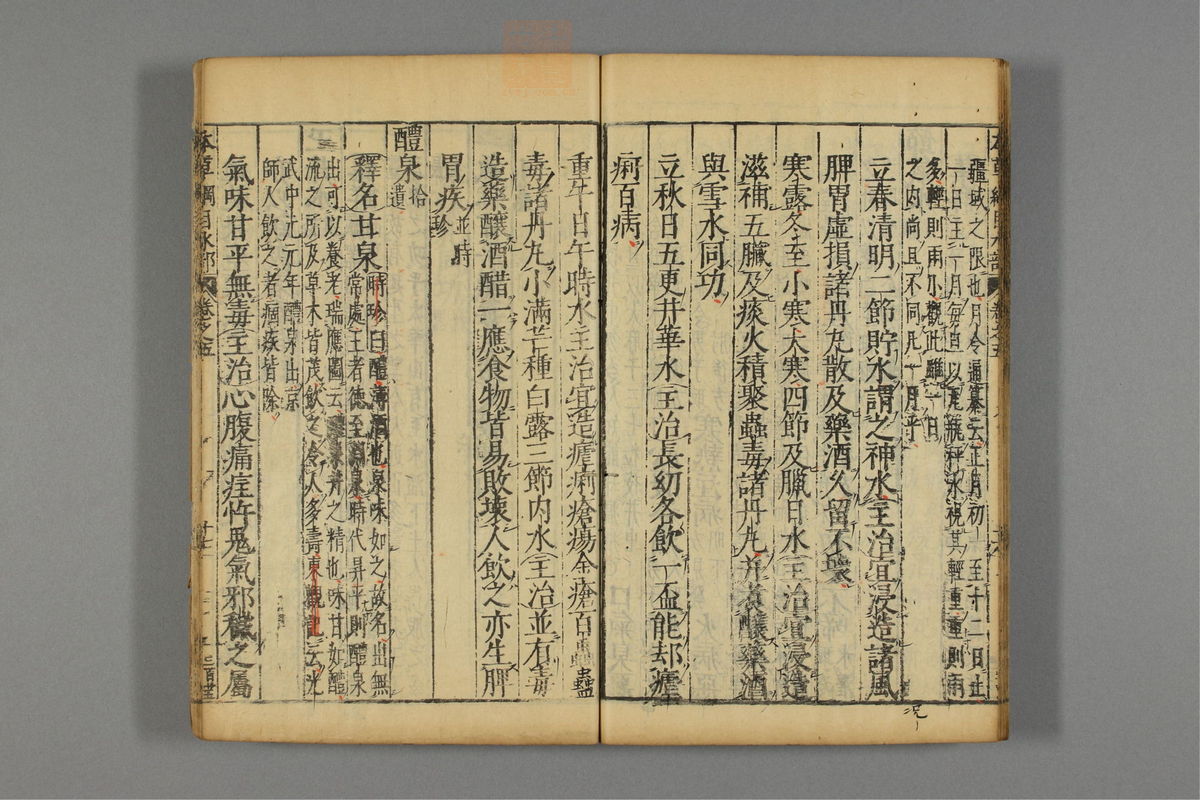 本草綱目水部 卷之五
疆域之限也月令通纂云正月初一至十二日止
一日主一月每旦以瓦瓶秤水視其輕重重則雨
多輕則雨小觀此雖一日
之內尚且不同况一月乎
立春清明二節貯水謂之神水主治宜浸造諸風
脾胃虛損諸丹丸散及藥酒久留不壞
寒露冬至小寒大寒四節及臘日水主治宜浸造
滋補五臟及痰火積聚蟲毒諸丹丸并煮釀藥酒
與雪水同功
立秋日五更井華水主治長幼各飲一盃能却瘧
痢百病
重午日午時水主治宜造瘧痢瘡瘍金瘡百蟲蠱
毒諸丹丸小滿芒種白露三節內水主治並有毒
造藥釀酒醋一應食物皆易敗壞人飲之亦生脾
胃疾並時珍
醴泉拾遺
釋名甘泉時珍曰醴薄酒也泉味如之故名出無
常處王者德至淵泉時代昇平則醴泉
出可以養老瑞應圖云醴泉水之精也味甘如醴
流之所及草木皆茂飲之令人多壽東觀記云光
武中元元年醴泉出京
師人飲之者痼疾皆除
氣味甘平無毒主治心腹痛疰忤鬼氣邪穢之屬
本草綱目水部 卷之五